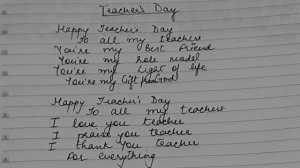 Teacher's Day
Happy Teacher's Day
To all my teachers
You're my Best Friend
You're my role model
You're my Light of life
You're my Gift
Happy Teacher's Day
To all my teachers
I love you teacher
I praise you teacher
I thank you teacher
For everything